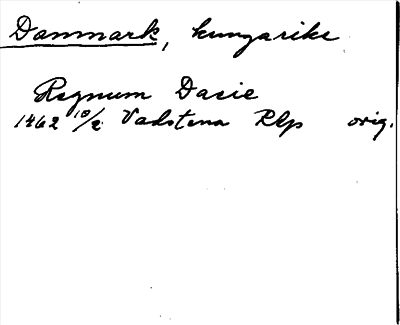 Danmark, kungarike
Regnum Dacie
1462 10/2 Vadstena RLp orig.